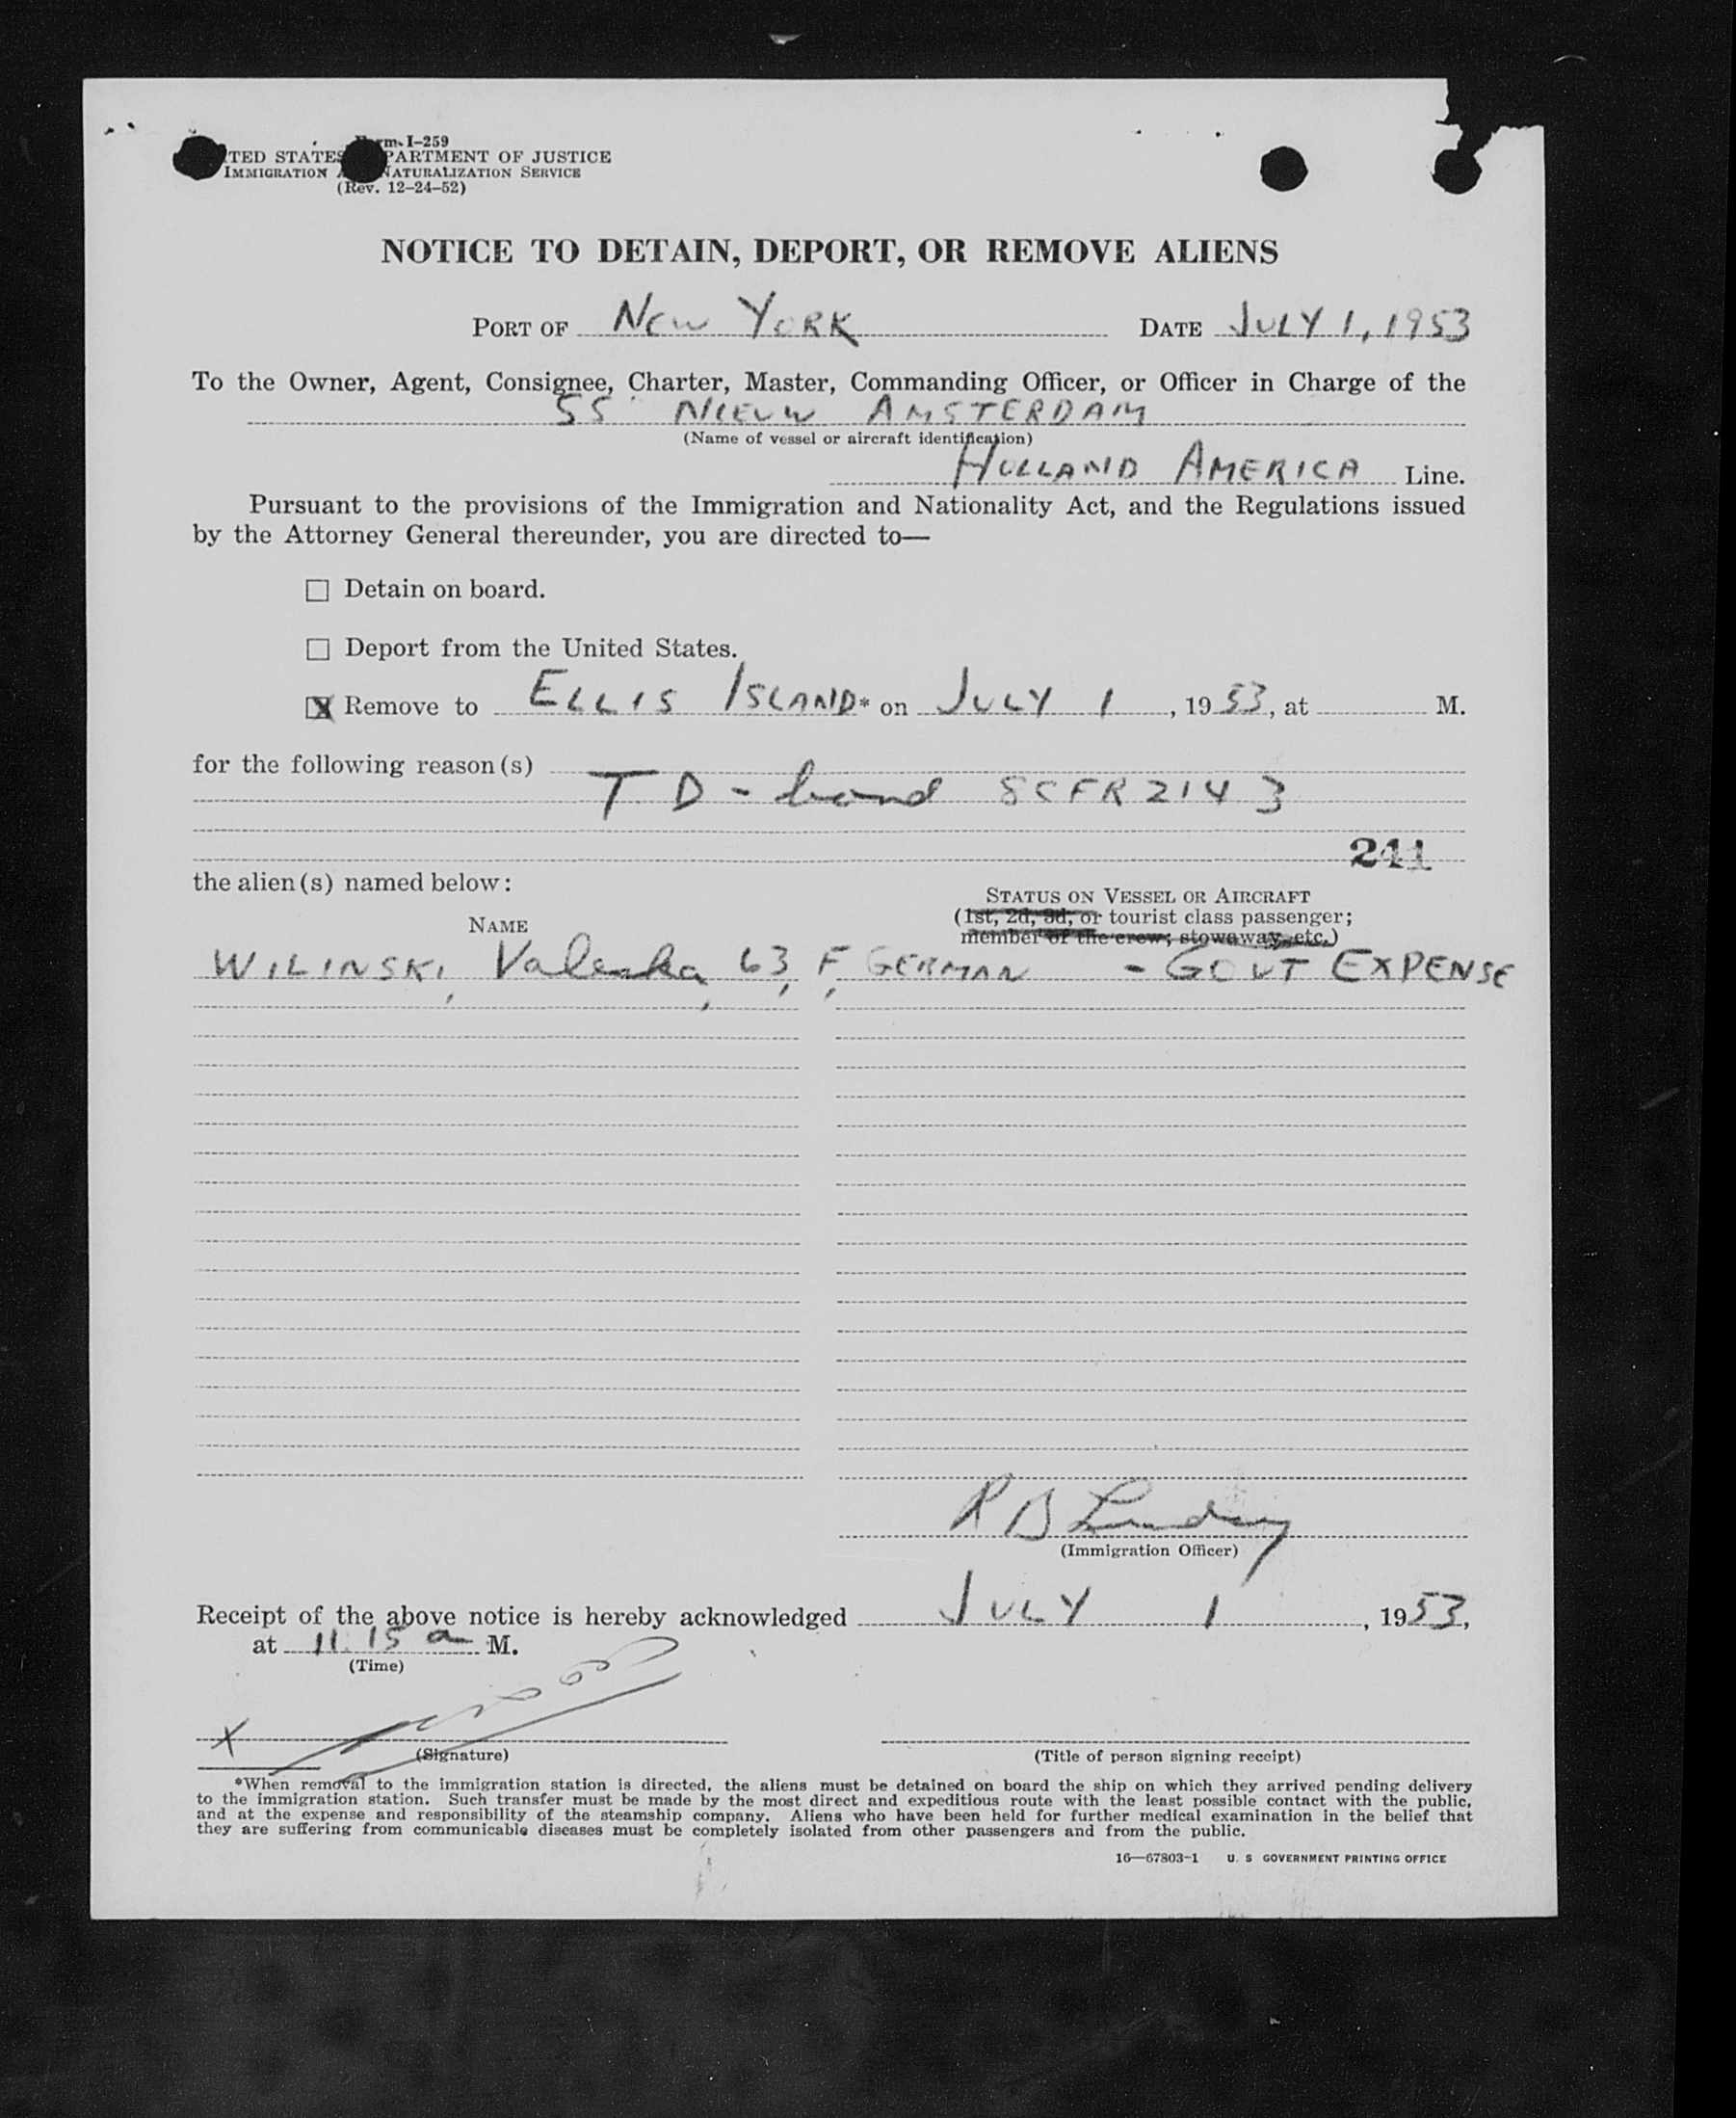 Form I-259
UNITED STATES DEPARTMENT OF JUSTICE
IMMIGRATION AND NATURALIZATION SERVICE
(Rev. 12-24-52)
NOTICE TO DETAIN, DEPORT, OR REMOVE ALIENS
PORT OF NEW YORK DATE JULY 1, 1953
To the Owner, Agent, Consignee, Charter, Master, Commanding Officer, or Officer in Charge of the
SS NIEUW AMSTERDAM
(Name of vessel or aircraft identification)
HOLLAND AMERICA Line.
Pursuant to the provisions of the Immigration and Nationality Act, and the Regulations issued
by the Attorney General thereunder, you are directed to—
☐ Detain on board.
☐ Deport from the United States.
☒ Remove to ELLIS ISLAND* on JULY 1, 1953, at M.
for the following reason(s)
T D - bond 8CFR 214 3
241
the alien(s) named below:
STATUS ON VESSEL OR AIRCRAFT
NAME (1st, 2d, 3d, or tourist class passenger;
member of the crew; stowaway, etc.)
WILINSKI, Valeska, 63, F, GERMAN - GOVT EXPENSE
R B
(Immigration Officer)
Receipt of the above notice is hereby acknowledged JULY 1, 1953,
at 11.15 a M.
(Time)
X
(Signature) (Title of person signing receipt)
*When removal to the immigration station is directed, the aliens must be detained on board the ship on which they arrived pending delivery
to the immigration station. Such transfer must be made by the most direct and expeditious route with the least possible contact with the public,
and at the expense and responsibility of the steamship company. Aliens who have been held for further medical examination in the belief that
they are suffering from communicable diseases must be completely isolated from other passengers and from the public.
16—67803-1 U. S GOVERNMENT PRINTING OFFICE